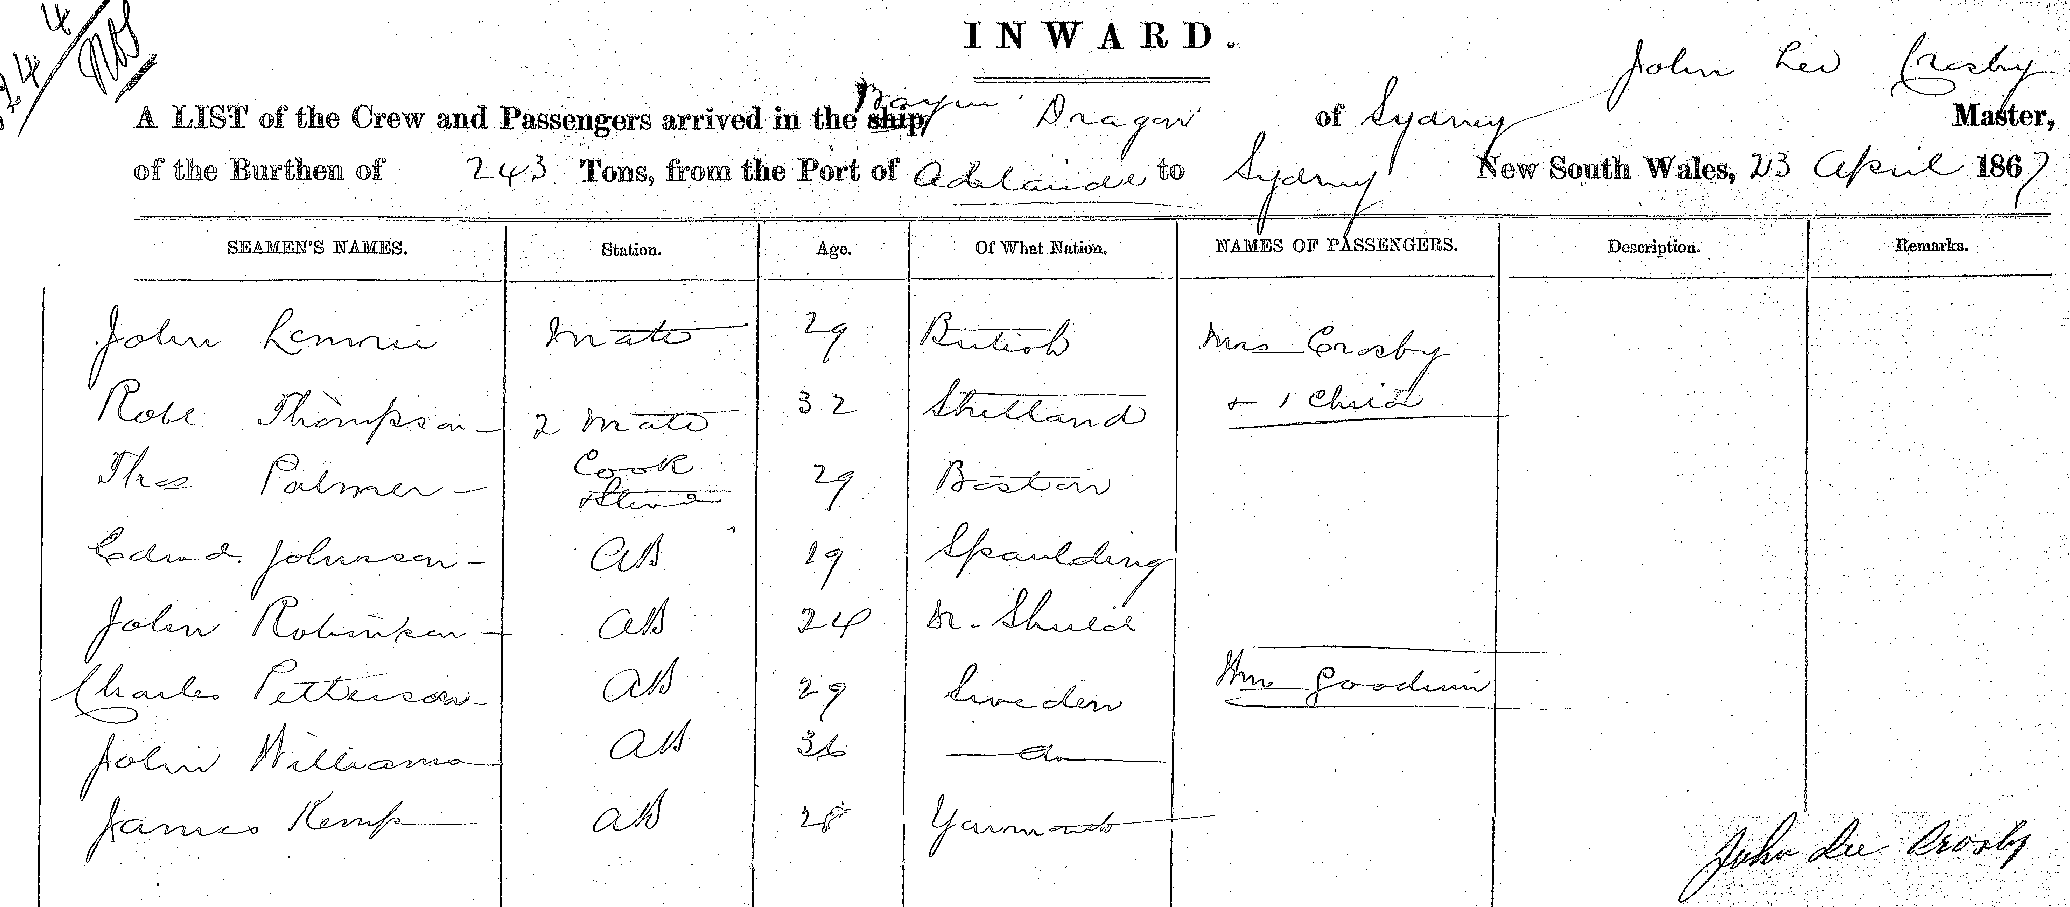 24/4
INWARD.
A LIST of the Crew and Passengers arrived in the ship Dragon of Sydney John Lee Crosby Master,
of the Burthen of 243 Tons, from the Port of Adelaide to Sydney New South Wales, 23 April 1867
SEAMEN'S NAMES. Station. Age. Of What Nation. NAMES OF PASSENGERS. Description. Remarks.
John Rennie Mate 29 British Mrs Crosby
Robt Thompson 2 Mate 32 Shetland + 1 Child
Thos Palmer Cook + Stewd 29 Boston
Edwd. Johnson AB 19 Spaulding
John Robinson AB 24 N. Shield
Charles Petterson AB 29 Sweden Goodwin
John Williams AB 36 do
James Kemp AB 28 Yarmouth
John Lee Crosby